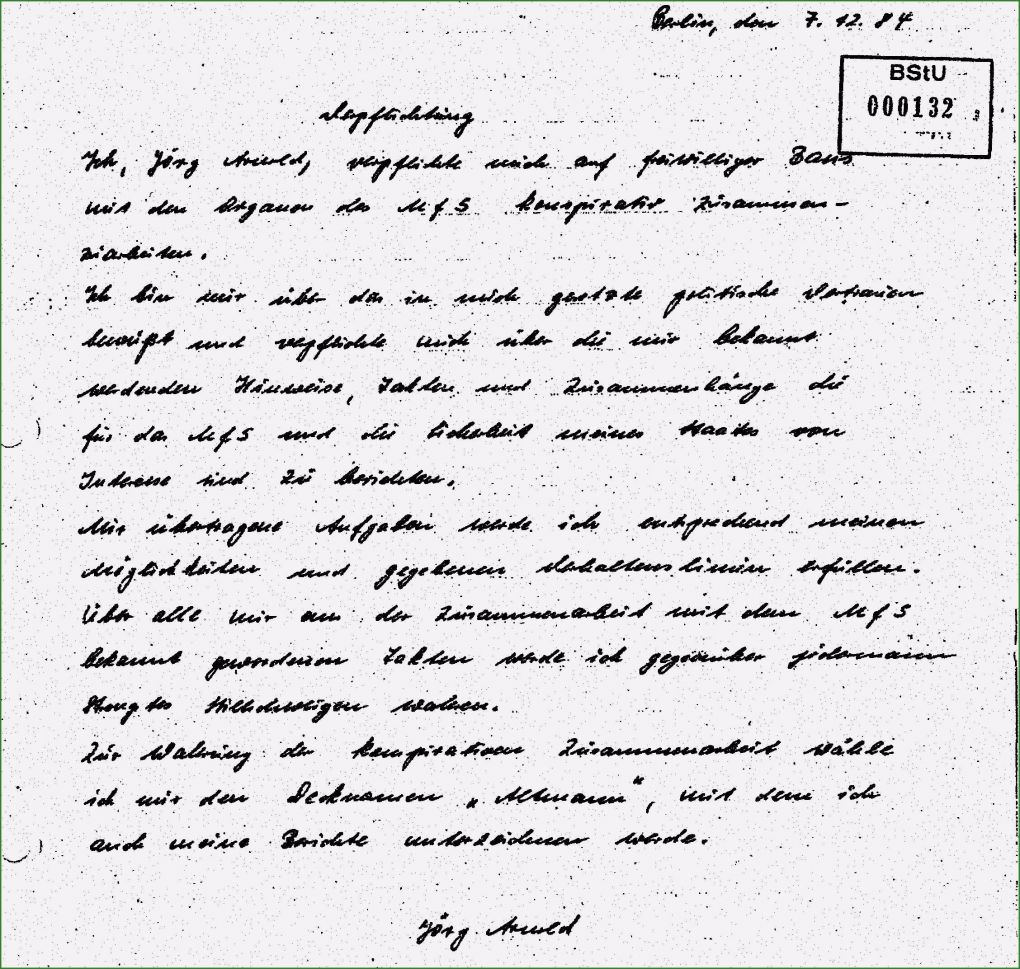 Berlin, den 7. 12. 84
BStU
000132
Verpflichtung
Ich, Jörg Arnold, verpflichte mich auf freiwilliger Basis
mit den Organen des MfS konspirativ zusammen-
zuarbeiten.
Ich bin mir über das in mich gesetzte politische Vertrauen
bewußt und verpflichte mich über die mir bekannt
werdenden Hinweise, Fakten und Zusammenhänge die
für das MfS und die Sicherheit meines Staates von
Interesse sind zu berichten.
Mir übertragene Aufgaben werde ich entsprechend meinen
Möglichkeiten und gegebenen Verhaltenslinien erfüllen.
Über alle mir aus der Zusammenarbeit mit dem MfS
bekannt gewordenen Fakten werde ich gegenüber jedermann
Strengstes Stillschweigen wahren.
Zur Wahrung der konspirativen Zusammenarbeit wähle
ich mir den Decknamen „Altmann", mit dem ich
auch meine Berichte unterzeichnen werde.
Jörg Arnold